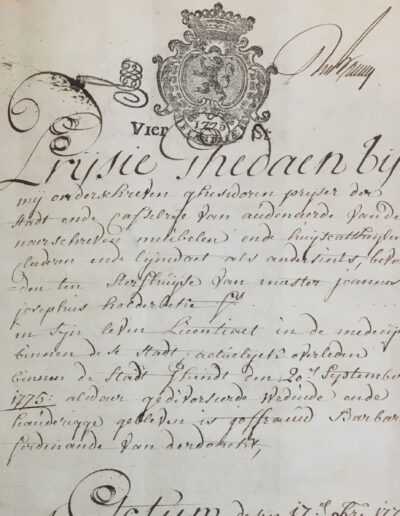 1775
VIER St
Prijsie Ghedaen bij
mij onderschreven ghesworen prijser der
Stadt ende Casselrije van audenaerde van de
naerschreven meubelen ende
cleederen ende lijnwaet als andersints, bevon
den ten Sterfhuijse van master joannes
josephus
in sijn leven Licentiaet in de medecij
binnen dese Stadt actuelijck overleden
binnen de Stadt Ghendt den 20.' September
1775: aldaer gedivorseerde Weduwe ende
haudereg͏ge gebleven is joffrauw Barbara
ferdinande Van
Actum desen 17.'